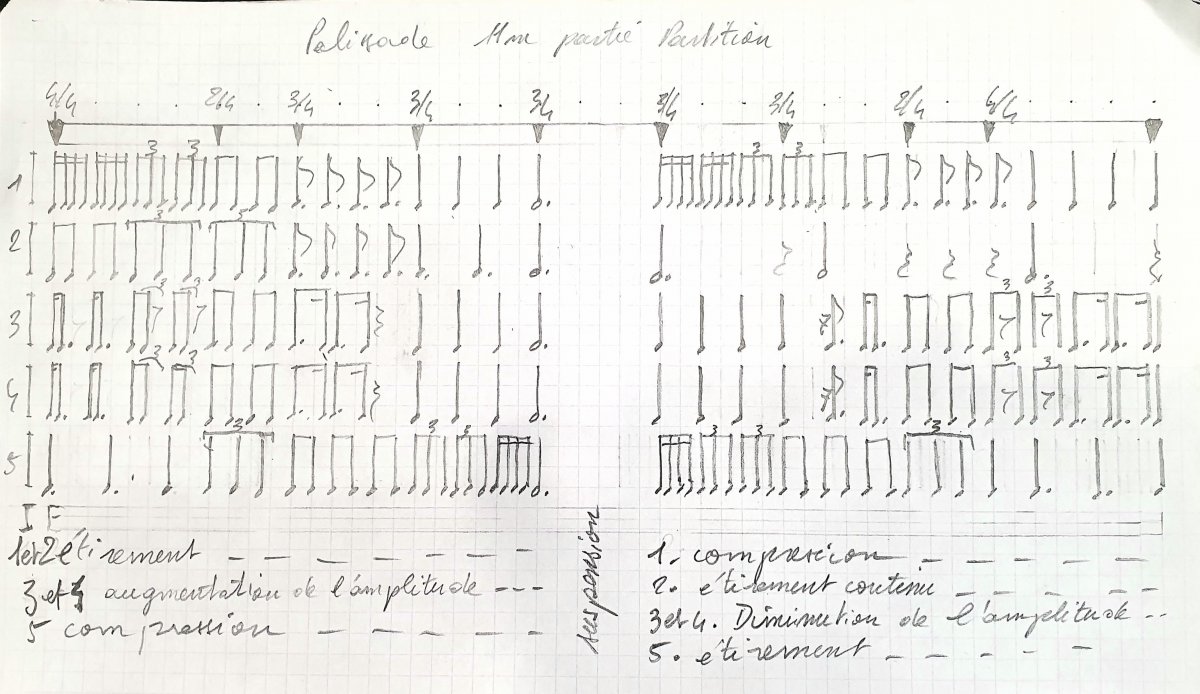 Palissade partie Partition
4/4 2/4 3/4 3/4 3/4 3/4 3/4 2/4 4/4
3 3 3 3
1
3 3 3
2
3 3 3 3
3
3 3 3 3
4
3 3 3 3 3 3
5
1 et 2 étirement
3 et 4 augmentation de l'amplitude
5 compression
suspension
1. compression
2. étirement contenu
3 et 4. Diminution de l'amplitude
5. étirement